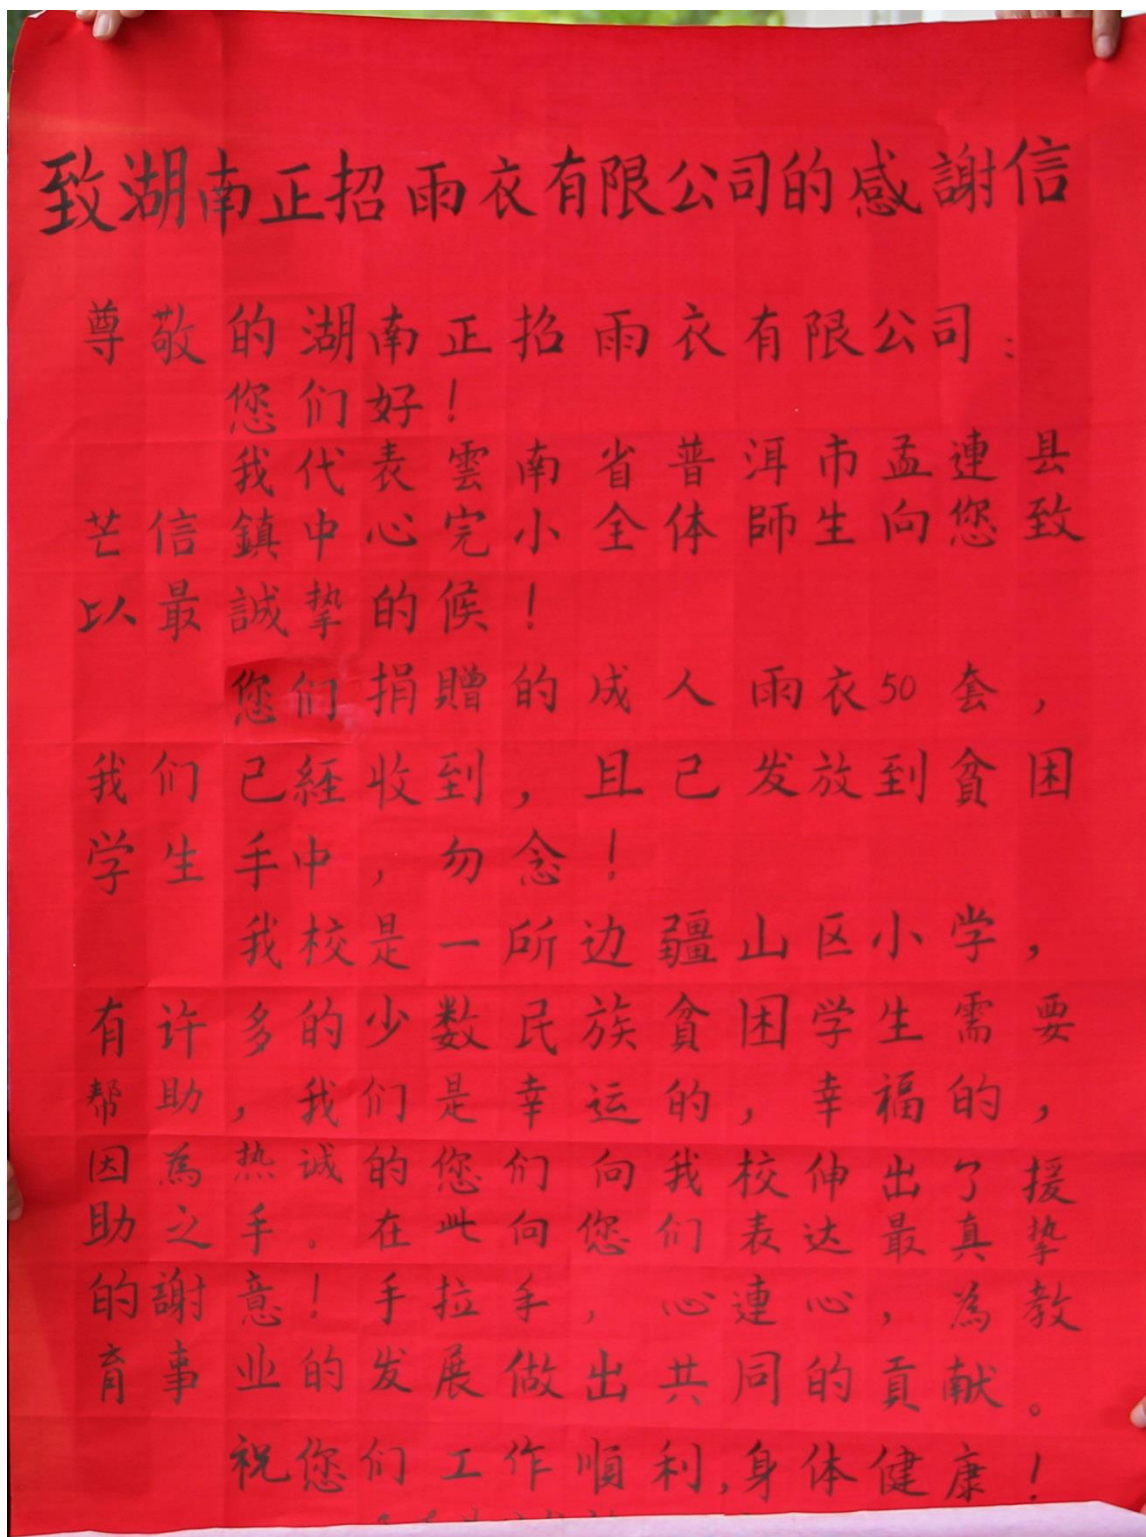 致湖南正招雨衣有限公司的感謝信
尊敬的湖南正招雨衣有限公司：
您们好！
我代表雲南省普洱市孟連县
芒信鎮中心完小全体師生向您致
以最誠挚的候！
您们捐贈的成人雨衣50套，
我们已經收到，且已发放到貧困
学生手中，勿念！
我校是一所边疆山区小学，
有许多的少数民族貧困学生需要
帮助，我们是幸运的，幸福的，
因為热诚的您们向我校伸出了援
助之手。在此向您们表达最真挚
的謝意！手拉手，心連心，為教
育事业的发展做出共同的貢献。
祝您们工作順利，身体健康！